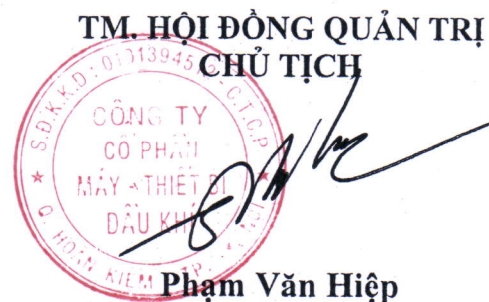 TM. HỘI ĐỒNG QUẢN TRỊ
CHỦ TỊCH
S.Đ.K.K.D: C.T.C.P
CÔNG TY
CỔ PHẦN
MÁY - THIẾT BỊ
DẦU KHÍ
Q. HOÀN KIẾM - TP.
Phạm Văn Hiệp